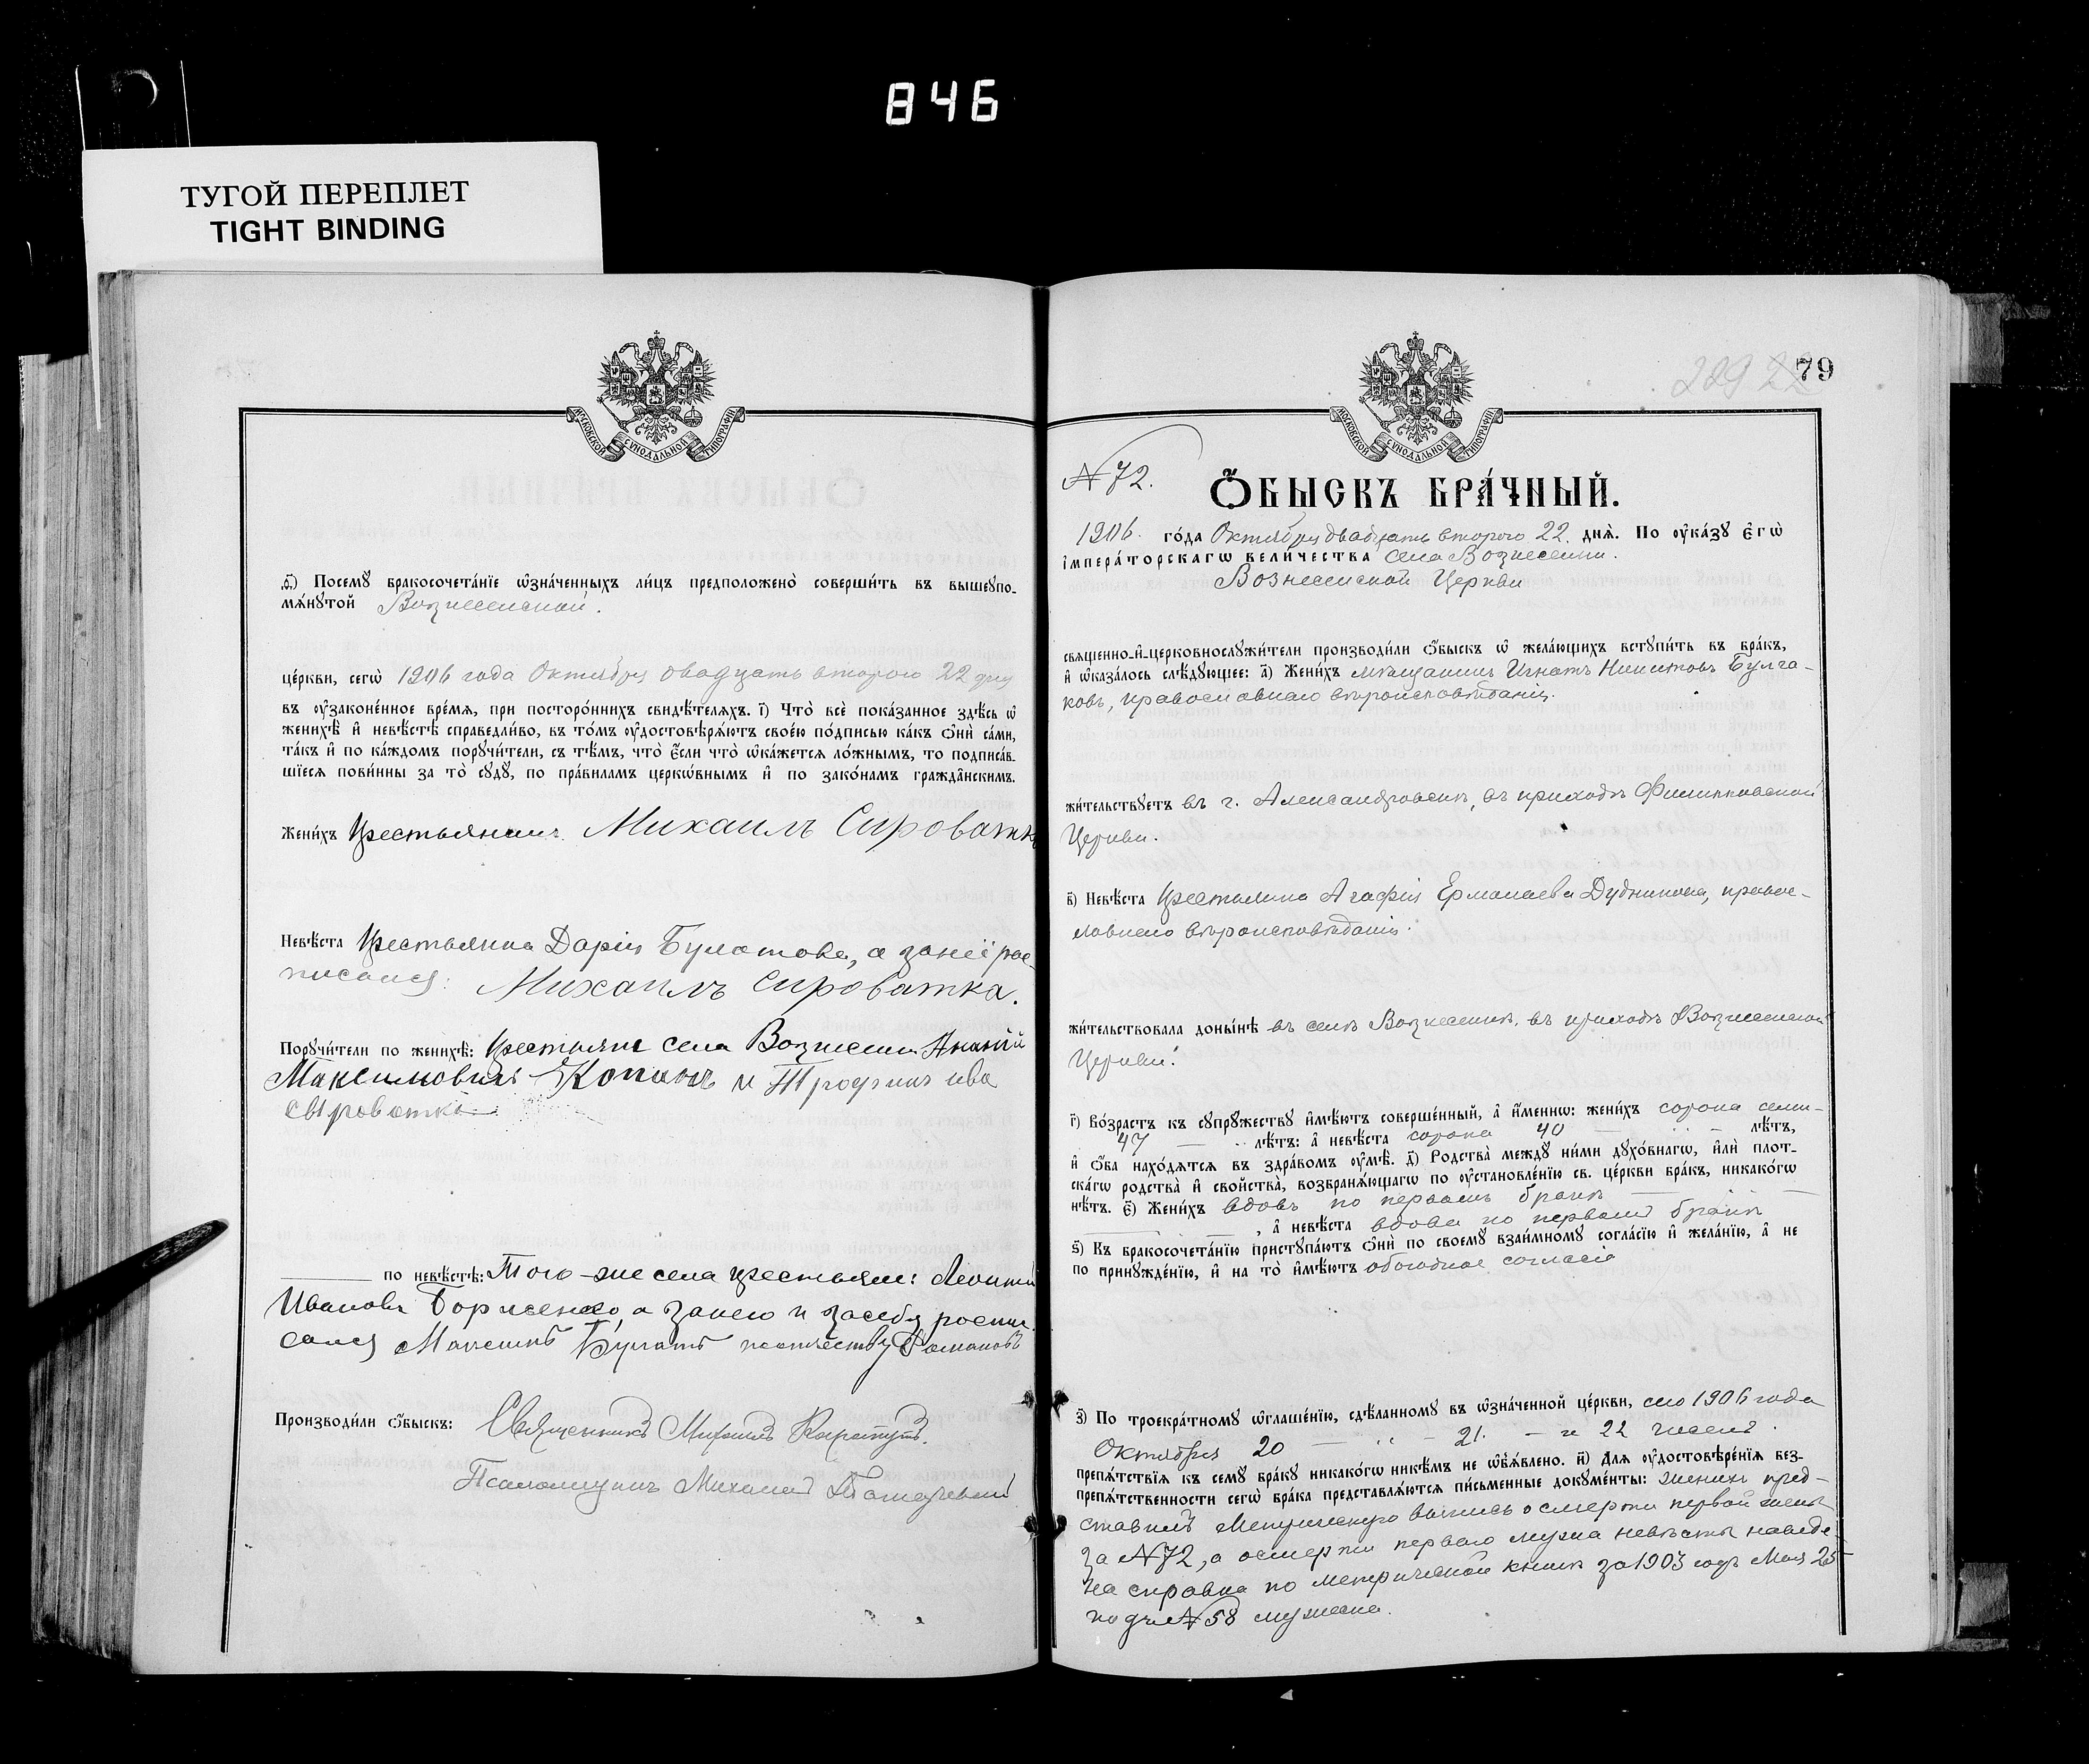 846
ТУГОЙ ПЕРЕПЛЕТ
TIGHT BINDING
МОСКОВСКОЙ СѴНОДАЛЬНОЙ ТИПОГРАФІИ
ѳ҃) Посемꙋ бракосочета́нїе ѡ҆зна́ченныхъ ли́цъ предположено̀ соверши́ть въ вышеꙋпо-
мѧ́нꙋтой Вознесенской.
це́ркви, сегѡ̀ 1906 года Октября двадцать второго 22 дня
въ ᲂу҆зако́ненное вре́мѧ, при посторо́ннихъ свидѣ́телѧхъ. і҃) Что̀ всѐ пока́занное здѣ́сь ѡ҆
женихѣ̀ и҆ невѣ́стѣ справедли́во, въ то́мъ ᲂу҆достовѣрѧ́ютъ свое́ю по́дписью ка́къ ѻ҆нѝ са́ми,
та́къ и҆ по ка́ждомъ порꙋчи́тели, съ тѣ́мъ, что̀ є҆́сли что̀ ѡ҆ка́жетсѧ ло́жнымъ, то подписа́в-
шїесѧ пови́нны за то̀ сꙋдꙋ̀, по пра́виламъ церкѡ́внымъ и҆ по зако́намъ гражда́нскимъ.
Жени́хъ Крестьянинъ Михаилъ Сироватк
Невѣ́ста Крестьянка Дарія Булатова, а за неё рос-
писался: Михаилъ Сироватка.
Порꙋчи́тели по женихѣ̀: Крестьяне села Вознесенки Ананій
Максимовичъ Копанъ и Трофимъ ива
Сыроватка
по невѣ́стѣ: Того-же села крестьяне: Леонтій
Ивановъ Борисенко, а за него и за себя роспи-
сался Максимъ Булатъ по отчеству Романовъ
Производи́ли ѻ҆́быскъ: Священникъ Михаилъ
Псаломщикъ Михаилъ
79
N 72.
МОСКОВСКОЙ СѴНОДАЛЬНОЙ ТИПОГРАФІИ
Ѻ҆́БЫСКЪ БРА́ЧНЫЙ.
1906. го́да Октября двадцать второго 22. днѧ̀. По ᲂу҆ка́зꙋ є҆гѡ̀
і҆мпера́торскагѡ вели́чества села Вознесенки.
Вознесенской Церкви
свѧщенно-и҆-церковнослꙋжи́тели производи́ли ѻ҆́быскъ ѡ҆ жела́ющихъ встꙋпи́ть въ бра́къ,
и҆ ѡ҆каза́лось слѣ́дꙋющее: а҃) Жени́хъ мѣщанинъ Игнатъ Никитовъ Булга-
ковъ, православнаго вѣроисповѣданія.
жи́тельствꙋетъ въ г. Александровскѣ, въ приходѣ Филипповской
Церкви.
в҃) Невѣ́ста Крестьянка Агафія Ермолаева Дудникова, правос-
лавнаго вѣроисповѣданія.
жи́тельствовала доны́нѣ въ селѣ Вознесенкѣ, въ приходѣ Вознесенской
Церкви.
г҃) Во́зрастъ къ сꙋпрꙋ́жествꙋ и҆мѣ́ютъ соверше́нный, а҆ и҆́меннѡ: жени́хъ сорока семи -
47 — лѣ́тъ: а҆ невѣ́ста сорока 40 — лѣ́тъ,
и҆ ѻ҆́ба нахо́дѧтсѧ въ здра́вомъ ᲂу҆мѣ̀. д҃) Родства̀ междꙋ̀ ни́ми дꙋхо́внагѡ, и҆лѝ плот-
ска́гѡ родства̀ и҆ сво́йства, возбранѧ́ющагѡ по ᲂу҆становле́нїю св. це́ркви бра́къ, никако́гѡ
нѣ́тъ. є҃) Жени́хъ вдовъ по первомъ бракѣ —
, а҆ невѣ́ста вдова по первомъ бракѣ
ѕ҃) Къ бракосочета́нїю пристꙋпа́ютъ ѻ҆нѝ по своемꙋ̀ взаи́мномꙋ согла́сїю и҆ жела́нїю, а҆ не
по принꙋжде́нїю, и҆ на то̀ и҆мѣ́ютъ обоюдное согласіе
з҃) По троекра́тномꙋ ѡ҆глаше́нїю, сдѣ́ланномꙋ въ ѡ҆зна́ченной це́ркви, сего 1906 года
Октября 20 — 21. — и 22 чиселъ.
препѧ́тствїѧ къ семꙋ̀ бра́кꙋ никако́гѡ никѣ́мъ не ѡ҆б̾ѧ́влено. и҃) Длѧ ᲂу҆достовѣре́нїѧ без-
препѧ́тственности сегѡ̀ бра́ка представлѧ́ютсѧ пи́сьменные докꙋме́нты: женихъ пред-
ставилъ Метрическую выпись о смерти первой жены
за N 72, о смерти перваго мужа невѣсты наведе-
на справка по метрической книгѣ за 1903 годъ Мая 25
подъ N 58 мужска.